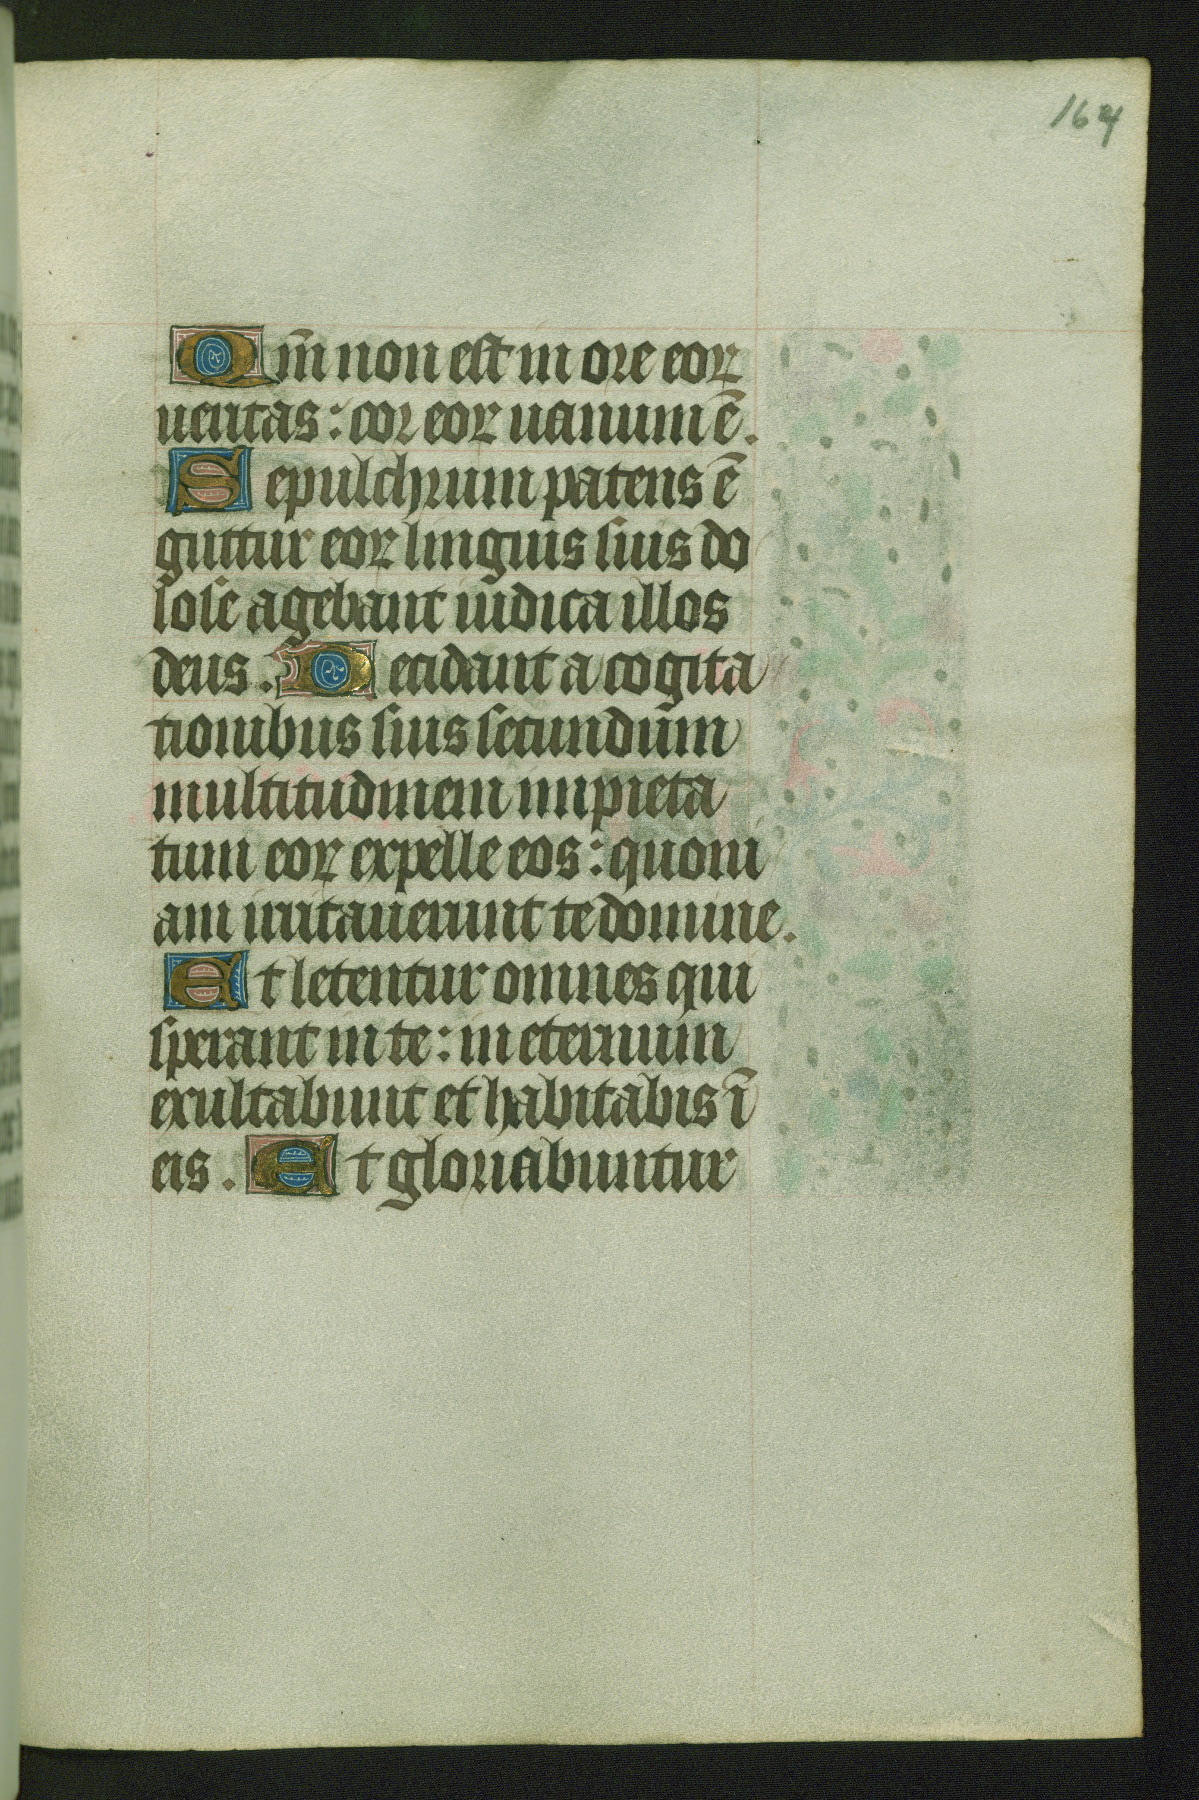 164
Qm̄ non est in ore eoꝝ
ueritas : cor eoꝝ uanum ē .
Sepulchrum patens ē
guttur eoꝝ linguis suis do
lose agebant iudica illos
deus . Decidant a cogita
tionibus suis secundum
multitudinem impieta
tum eoꝝ expelle eos : quoni
am irritauerunt te domine .
Et letentur omnes qui
sperant in te : in eternum
exultabunt et habitabis ī
eis . Et gloriabuntur